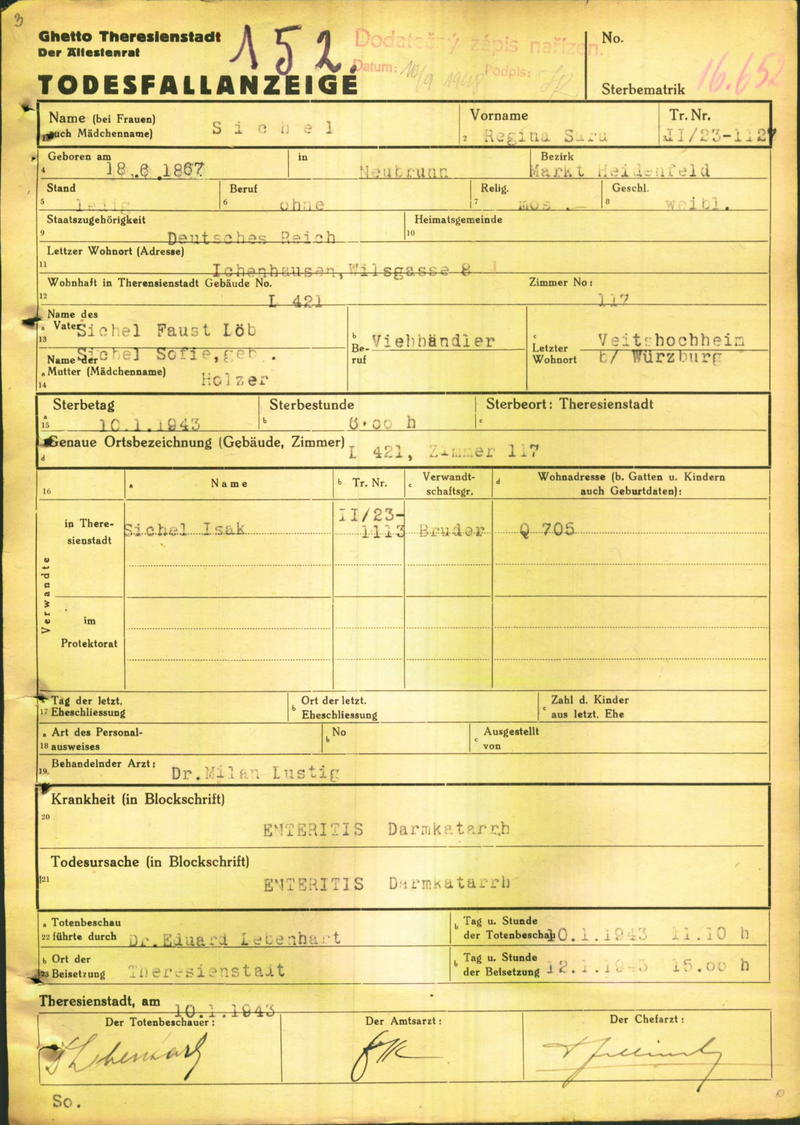 3
Ghetto Theresienstadt
Der Ältestenrat
152.
Dodatečný zápis nařízen.
Datum: 10/9 1948 Podpis:
No.
TODESFALLANZEIGE
Sterbematrik 16.652
Name (bei Frauen) auch Mädchenname) Sichel
Vorname 2 Regina Sara
Tr. Nr. II/23-1127
Geboren am 4 18.6.1867 in Neubrunn Bezirk Markt Heidenfeld
Stand 5 ledig Beruf 6 ohne Relig. 7 mos.- Geschl. 8 weibl.
Staatszugehörigkeit 9 Deutsches Reich Heimatsgemeinde 10
Lettzer Wohnort (Adresse)
11 Ichenhausen, Wilsgasse 8
Wohnhaft in Therensienstadt Gebäude No. Zimmer No:
12 L 421 117
Name des
a Vaters Sichel Faust Löb
13
Name der Sichel Sofie, geb.
a Mutter (Mädchenname) Holzer
14
b Be-ruf Viehhändler
c Letzter Wohnort Veitshochheim
b/ Würzburg
Sterbetag Sterbestunde Sterbeort: Theresienstadt
a 15 10.1.1943 b 6.00 h c
Genaue Ortsbezeichnung (Gebäude, Zimmer)
d L 421, Zimmer 117
16 a Name b Tr. Nr. c Verwandt-schaftsgr. d Wohnadresse (b. Gatten u. Kindern auch Geburtdaten):
Verwandte
in There-sienstadt Sichel Isak II/23-1113 Bruder Q 705
im Protektorat
a Tag der letzt. 17 Eheschliessung b Ort der letzt. Eheschliessung c Zahl d. Kinder aus letzt. Ehe
a Art des Personal- 18 ausweises b No c Ausgestellt von
19. Behandelnder Arzt: Dr. Milan Lustig
Krankheit (in Blockschrift)
20
ENTERITIS Darmkatarrh
Todesursache (in Blockschrift)
21
ENTERITIS Darmkatarrh
a Totenbeschau 22 führte durch Dr. Eduard Lebenhart b Tag u. Stunde der Totenbeschau 10.1.1943 11.10 h
b Ort der 23 Beisetzung Theresienstadt b Tag u. Stunde der Beisetzung 12.1.1943 15.00 h
Theresienstadt, am 10.1.1943
Der Totenbeschauer: Der Amtsarzt: Der Chefarzt:
So.